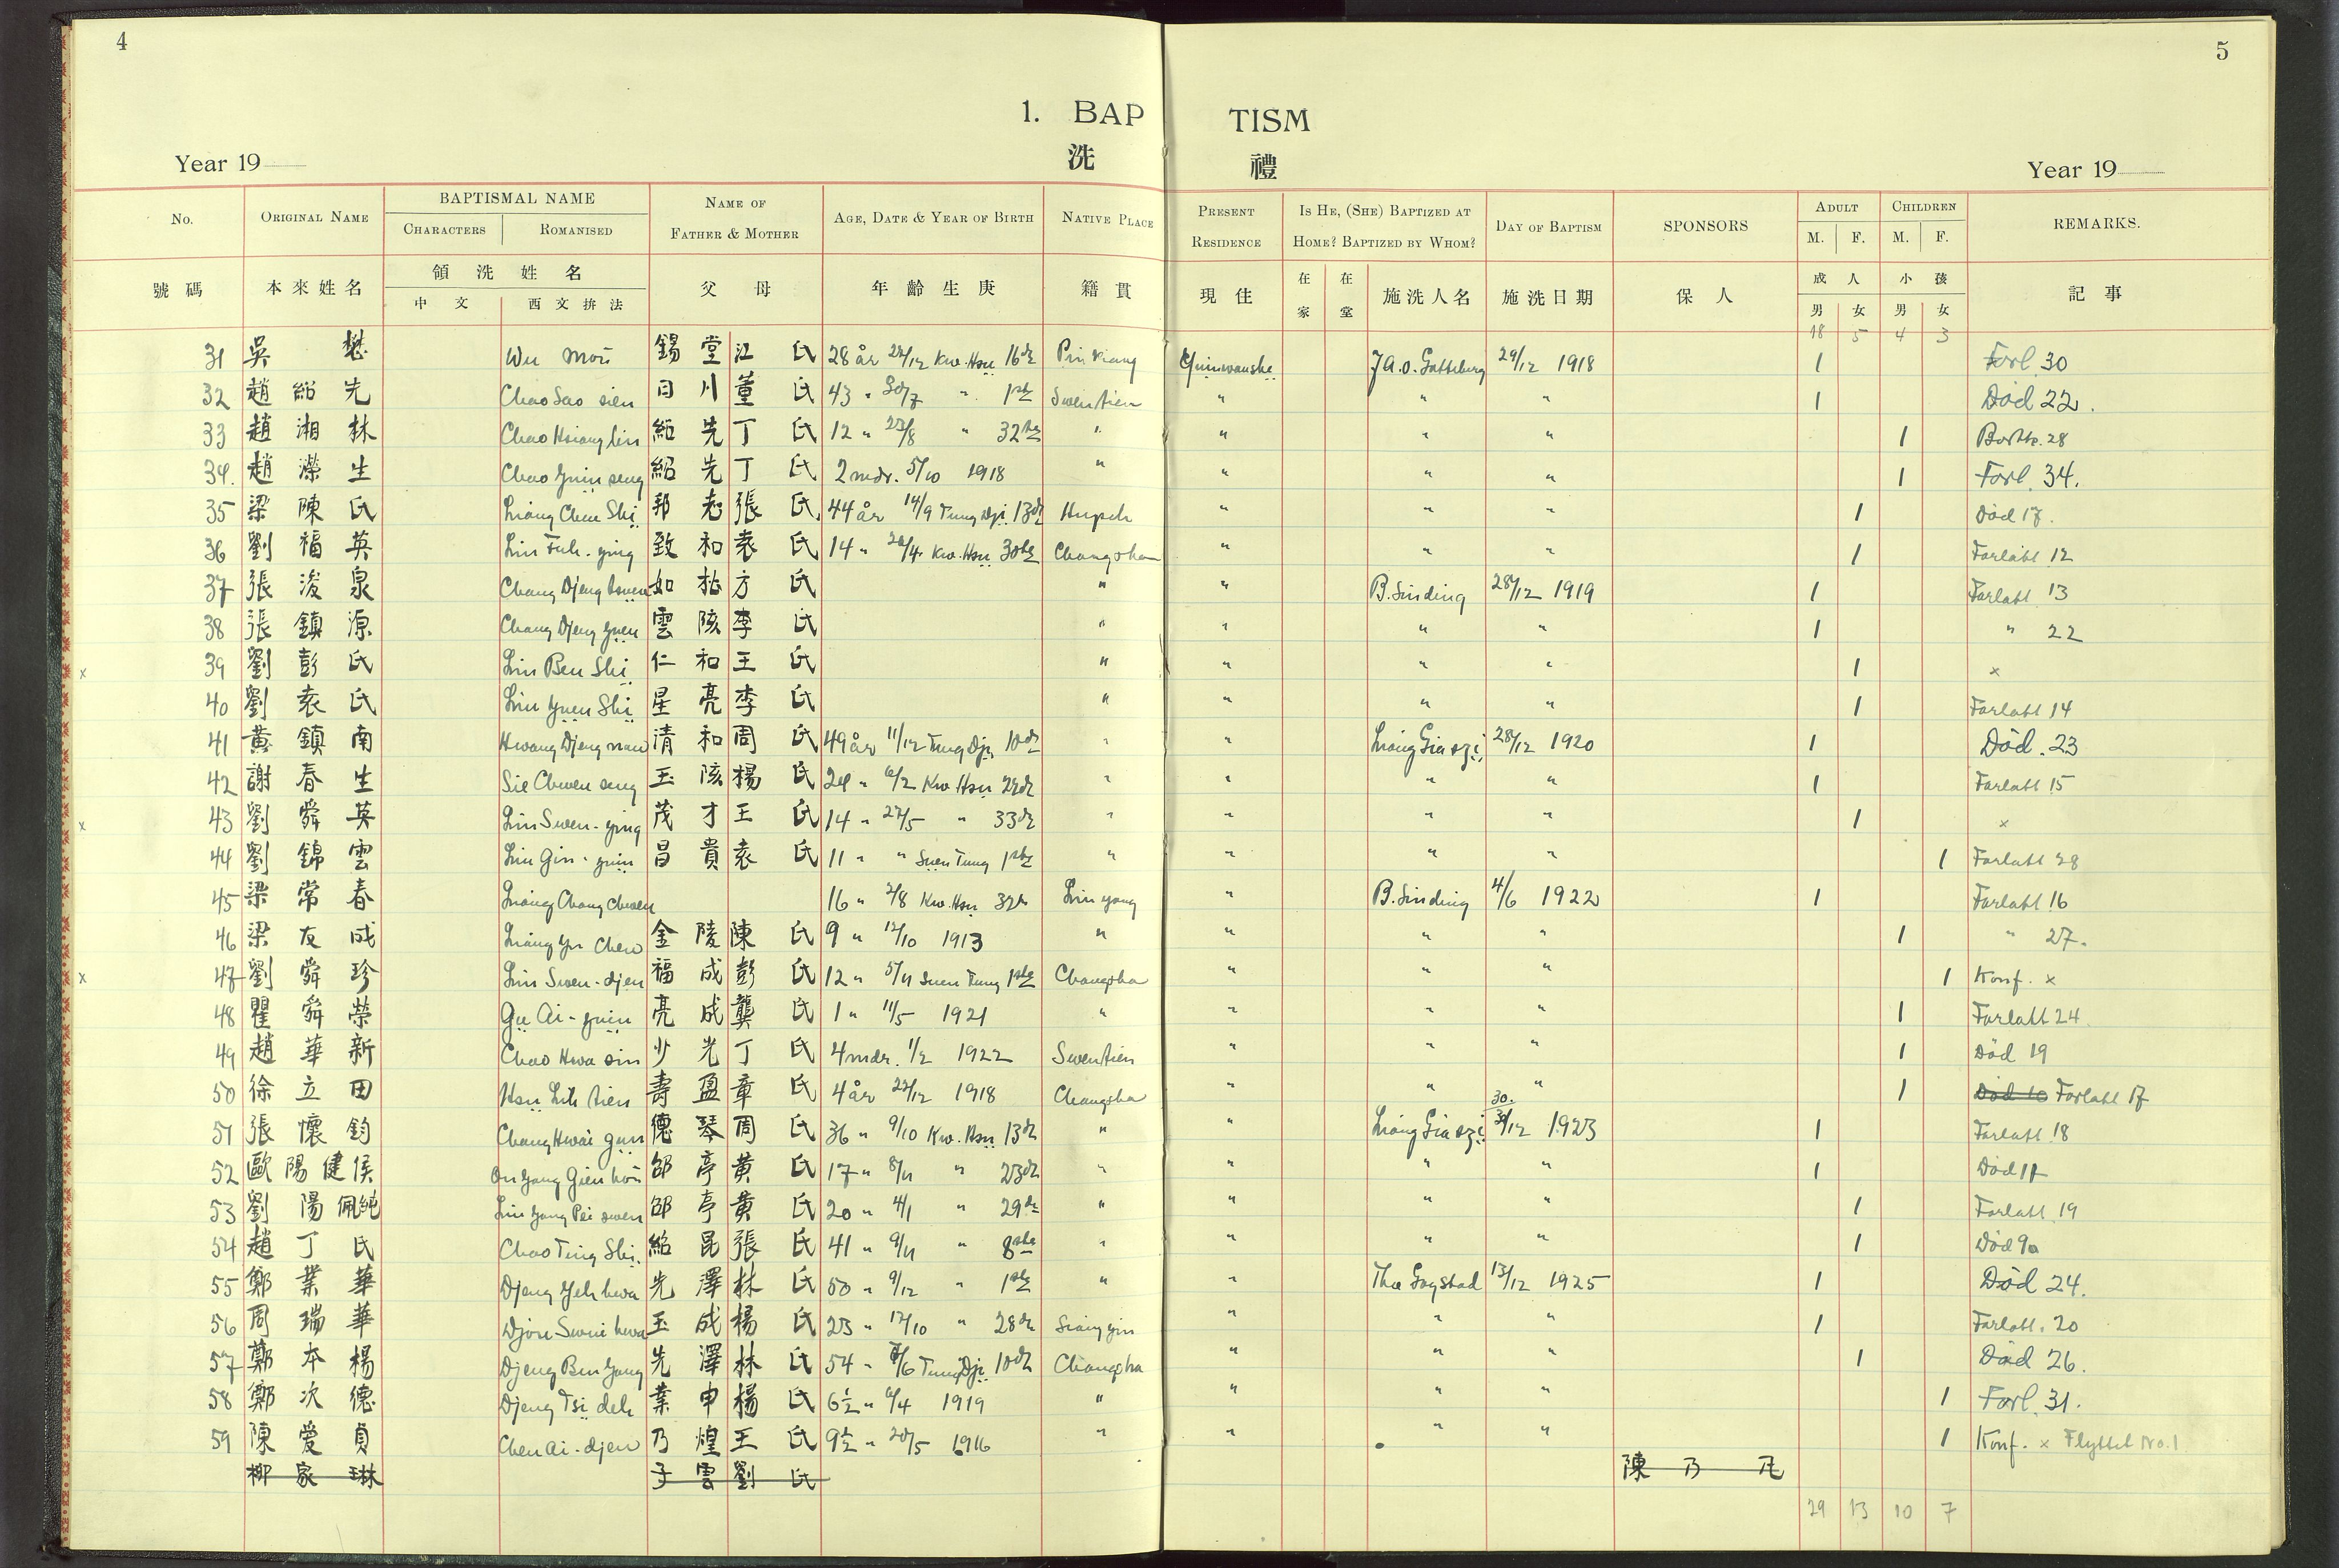 4
5
1. BAP TISM
Year 19 洗 禮 Year 19
No. ORIGINAL NAME BAPTISMAL NAME CHARACTERS ROMANISED NAME OF FATHER & MOTHER AGE, DATE & YEAR OF BIRTH NATIVE PLACE PRESENT RESIDENCE IS HE, (SHE) BAPTIZED AT HOME? BAPTIZED BY WHOM? DAY OF BAPTISM SPONSORS ADULT M. F. CHILDREN M. F. REMARKS.
號碼 本來姓名 領洗姓名 中文 西文拚法 父母 年齡生庚 籍貫 現住 在家 在堂 施洗人名 施洗日期 保人 成人 男 女 小孩 男 女 記事
18 5 4 3
31 吳懋 Wu Mou 錫堂 江氏 28 år 28/12 Kw. Hsu 16de Pin Kiang 29/12 1918 1 Forl. 30
32 趙紹先 Chao Sao sien 日川 董氏 43 " 30/7 " 1ste Swentien " " " 1 Död 22.
33 趙湘林 Chao Hsiang lin 紹先 丁氏 12 " 27/8 " 32te " " " " 1 Bortte. 28
34. 趙濼生 Chao Yuin seng 紹先 丁氏 2 mdr. 5/10 1918 " " " " 1 Forl. 34.
35 梁陳氏 Liang Chen Shi 邦 張氏 44 år 14/9 Tung Dji 13de Hupeh " " " 1 Död 17.
36 劉福英 Liu Fuh-ying 致和 袁氏 14 " /4. Kw. Hsu 30te Changsha " " " 1 Forlatt 12
37 張浚泉 Chang Djeng tsuen 如 方氏 " " B. Sinding 28/12 1919 1 Forlatt 13
38 張鎮源 Chang Djeng Yuen 雲陔 李氏 " " " " 1 " 22
x 39 劉彭氏 Liu Ben Shi 仁和 王氏 " " " " 1 x
40 劉袁氏 Liu Yuen Shi 星亮 李氏 " " " " 1 Forlatt 14
41 黄鎮南 Hwang Djeng nan 清和 周氏 49 år 11/12 Tung Dji 10de " " Liang Gia szi 28/12 1920 1 Död. 23
42 謝春生 Sie Chwen seng 玉陔 楊氏 24 " 6/2 Kw Hsu 22de " " " " 1 Forlatt 15
x 43 劉舜英 Liu Swen-ying 茂才 王氏 14 " 27/5 " 33de " " " " 1 x
44 劉錦雲 Liu Gin-yuin 昌貴 袁氏 11 " " Suen Tung 1ste " " " " 1 Forlatt 28
45 梁常春 Liang Chang Chwen 16 " 2/8 Kw. Hsu 32te Liu yang " B. Sinding 4/6 1922 1 Forlatt 16
46 梁友成 Liang Yu Chen 金陵 陳氏 9 " 12/10 1913 " " " " 1 " 27.
x 47 劉舜珍 Liu Swen-djen 福成 彭氏 12 " 5/11 Suen Tung 1ste Changsha " " " 1 Konf. x
48 瞿舜榮 Gu Ai-yuin 亮成 龔氏 1 " 11/5 1921 " " " " 1 Forlatt 24
49 趙華新 Chao Hwa sin 少光 丁氏 4 mdr. 1/2 1922 Swentien " " " 1 Död 19
50 徐立田 Hsu Lih tien 壽盈 章氏 4 år 22/12 1918 Changsha " " " 1 Död 10 Forlatt 17
51 張懷鈞 Chang Hwai gun 德琴 周氏 36 " 9/10 Kw. Hsu 13de " " Liang Gia szi 30. 30/12 1923 1 Forlatt 18
52 歐陽健侯 Ou Yang Gien hou 邵亭 黄氏 17 " 8/11 " 23de " " " " 1 Död 11
53 劉陽佩純 Liu Yang Pei swen 邵亭 黄氏 20 " 4/1 " 29de " " " " 1 Forlatt 19
54 趙丁氏 Chao Ting Shi 紹昆 張氏 41 " 9/11 " 8 " " " " 1 Död 9a
55 鄭業華 Djeng Yeh hwa 先澤 林氏 50 " 9/12 " 1ste " " Thv Gogstad 13/12 1925 1 Död 24.
56 周瑞華 Djou Swui hwa 玉成 楊氏 23 " 17/10 " 28de Siangyin " " " 1 Forlatt. 20
57 鄭本楊 Djeng Ben Yang 先澤 林氏 54 " /6 Tung Dji 10de Changsha " " " 1 Död 26.
58 鄭次德 Djeng Tsi deh 業申 楊氏 6½ " 6/4 1919 " " " " 1 Forl. 31.
59 陳愛貞 Chen Ai-djen 乃煌 王氏 9½ " 20/5 1916 " " " " 1 Konf. x Flyttet No. 1
柳家琳 子雲 劉氏 陳乃
29 13 10 7